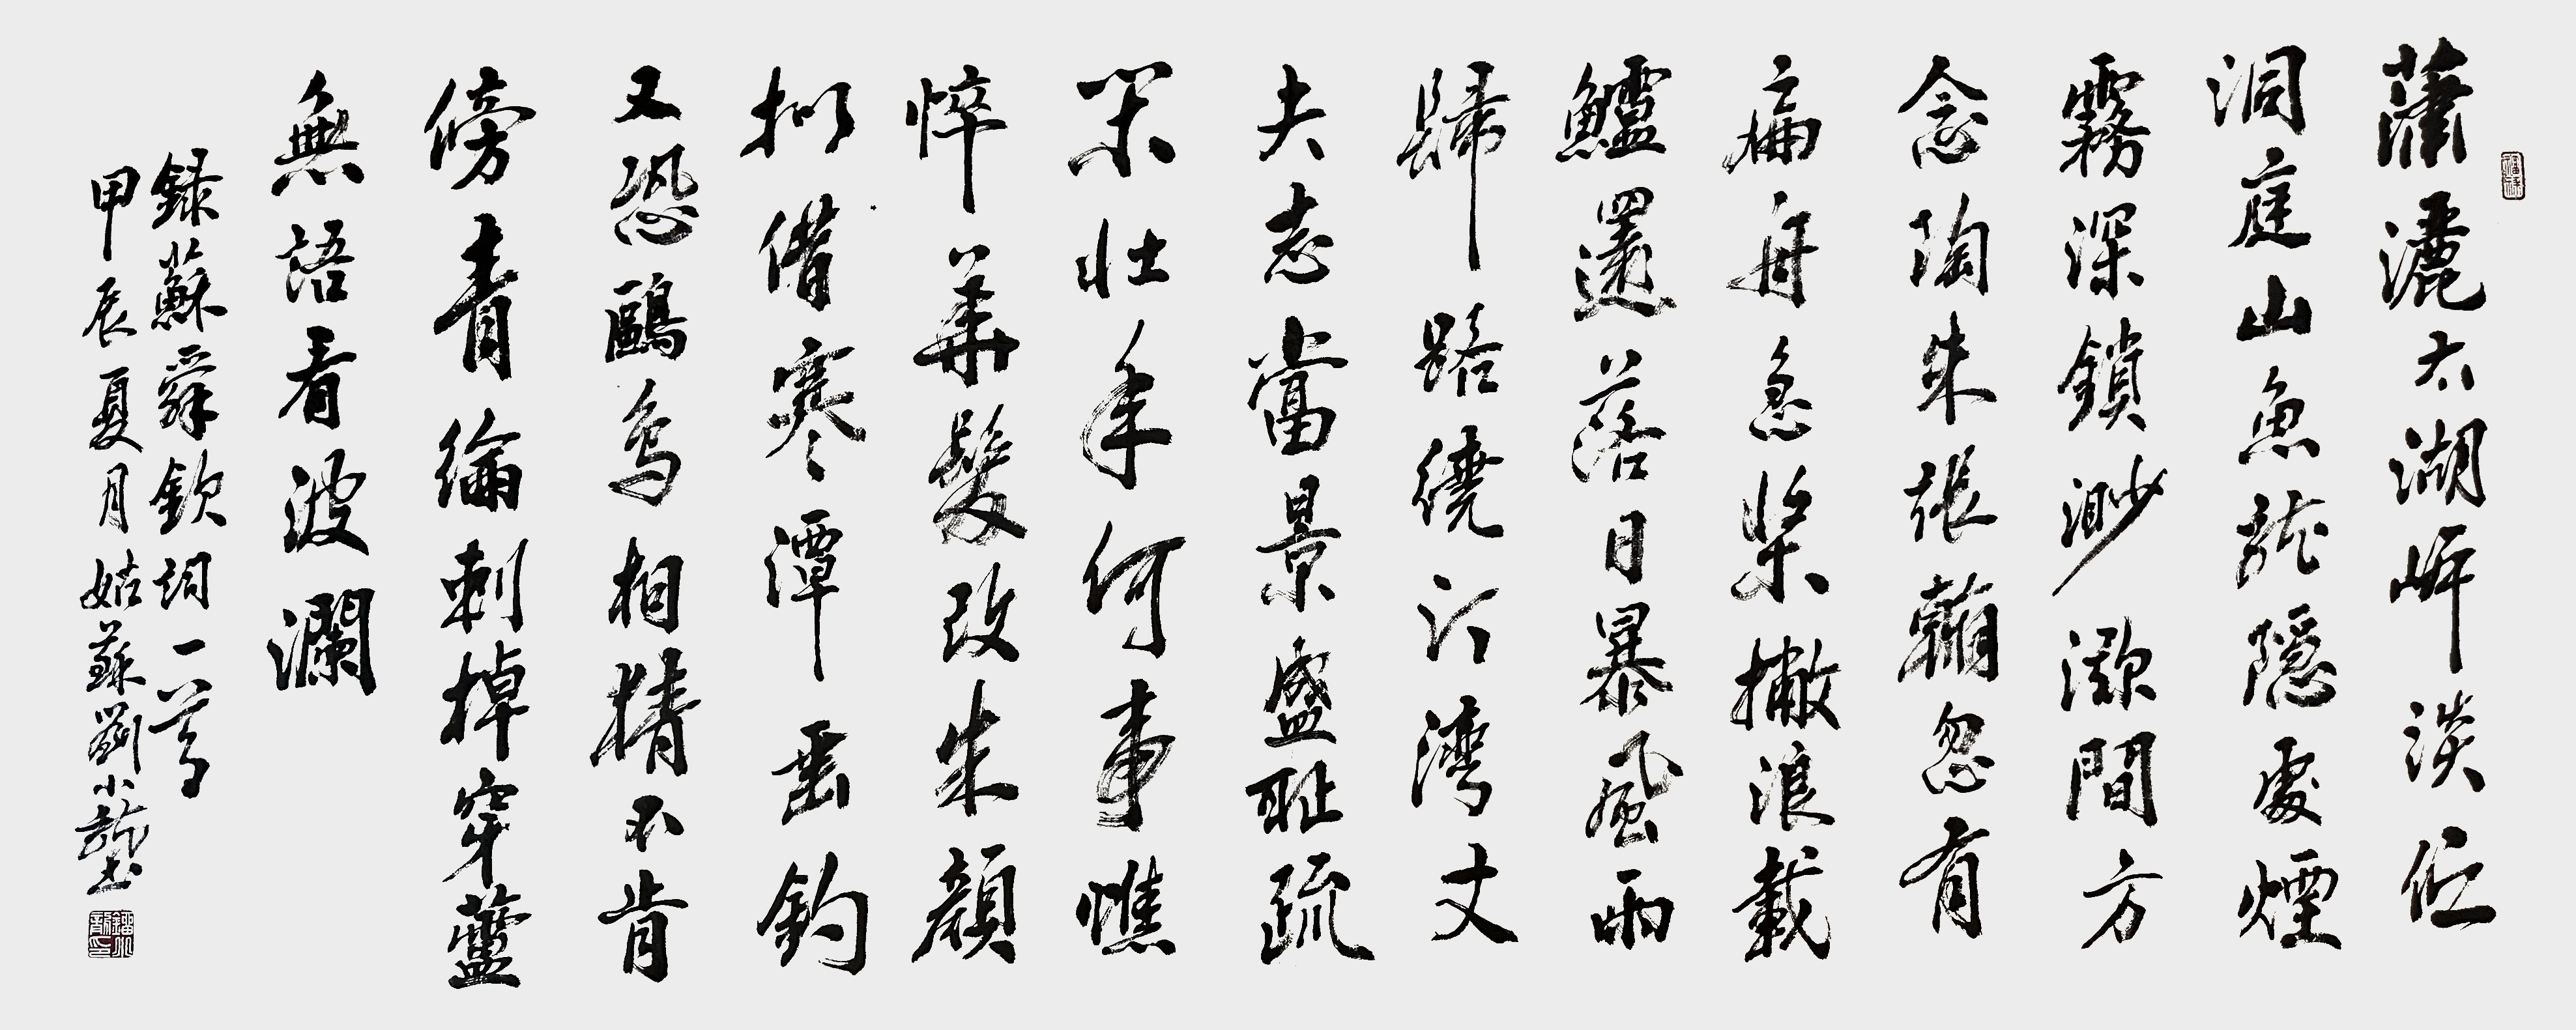 瀟灑太湖岸淡佇
洞庭山魚龍隱處煙
霧深鎖渺瀰間方
念陶朱張翰忽有
扁舟急槳撇浪載
鱸還落日暴風雨
歸路繞汀灣丈
夫志當景盛恥疏
閑壯年何事憔
悴華髮改朱顏
擬借寒潭垂釣
又恐鷗鳥相猜不肯
傍青綸刺棹穿蘆
無語看波瀾
錄蘇舜欽詞一首
甲辰夏月姑蘇劉小龍書